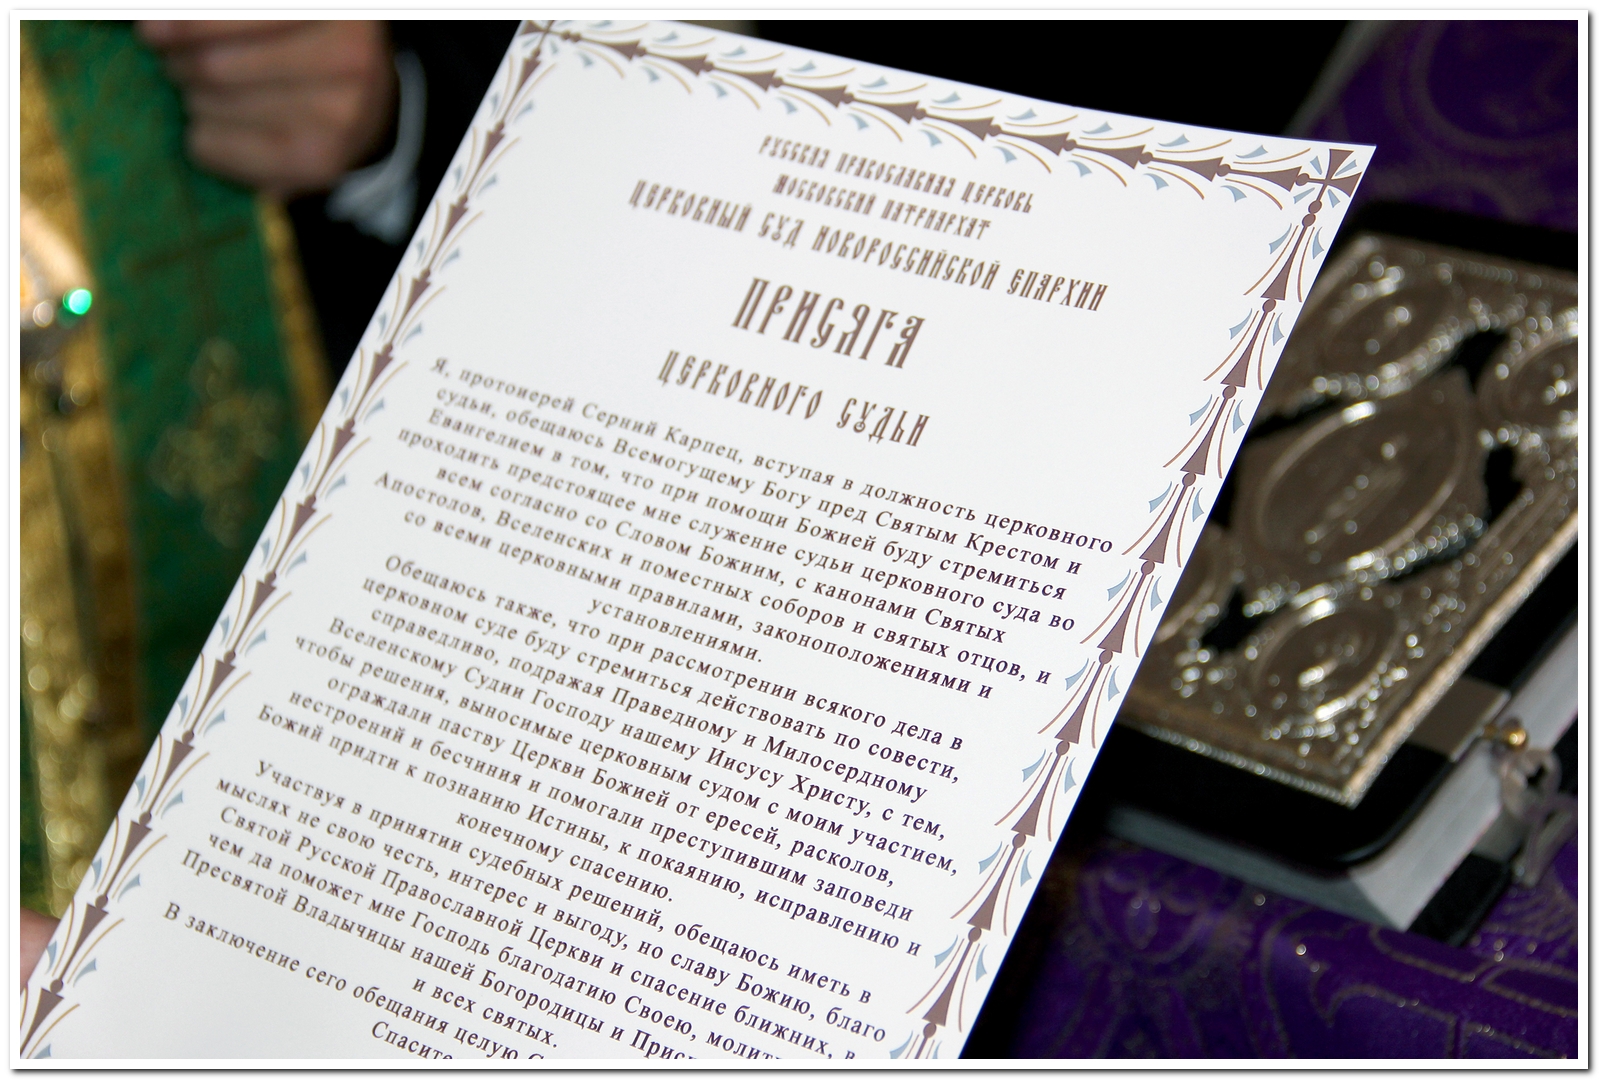 РУССКАЯ ПРАВОСЛАВНАЯ ЦЕРКОВЬ
МОСКОВСКИЙ ПАТРИАРХАТ
ЦЕРКОВНЫЙ СУД НОВОРОССИЙСКОЙ ЕПАРХИИ
ПРИСЯГА
ЦЕРКОВНОГО СУДЬИ
Я, протоиерей Сергий Карпец, вступая в должность церковного
судьи, обещаюсь Всемогущему Богу пред Святым Крестом и
Евангелием в том, что при помощи Божией буду стремиться
проходить предстоящее мне служение судьи церковного суда во
всем согласно со Словом Божиим, с канонами Святых
Апостолов, Вселенских и поместных соборов и святых отцов, и
со всеми церковными правилами, законоположениями и
установлениями.
Обещаюсь также, что при рассмотрении всякого дела в
церковном суде буду стремиться действовать по совести,
справедливо, подражая Праведному и Милосердному
Вселенскому Судии Господу нашему Иисусу Христу, с тем,
чтобы решения, выносимые церковным судом с моим участием,
ограждали паству Церкви Божией от ересей, расколов,
нестроений и бесчиния и помогали преступившим заповеди
Божий придти к познанию Истины, к покаянию, исправлению и
конечному спасению.
Участвуя в принятии судебных решений, обещаюсь иметь в
мыслях не свою честь, интерес и выгоду, но славу Божию, благо
Святой Русской Православной Церкви и спасение ближних, в
чем да поможет мне Господь благодатию Своею,
Пресвятой Владычицы нашей Богородицы и
и всех святых.
В заключение сего обещания целую